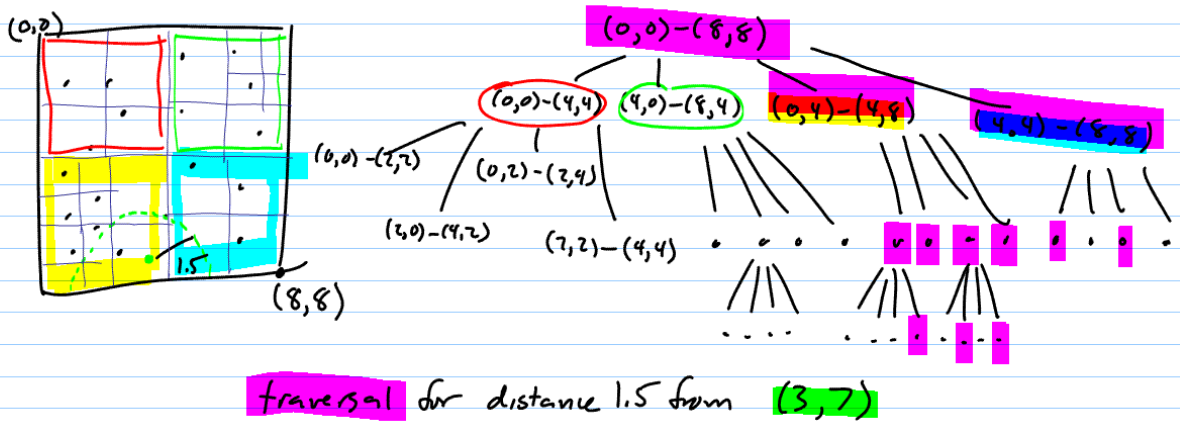 (0,0)
(0,0)-(8,8)
(0,0)-(4,4)
(4,0)-(8,4)
(0,4)-(4,8)
(4,4)-(8,8)
(0,0)-(2,2)
(0,2)-(2,4)
(2,0)-(4,2)
(2,2)-(4,4)
1.5
(8,8)
traversal for distance 1.5 from (3,7)